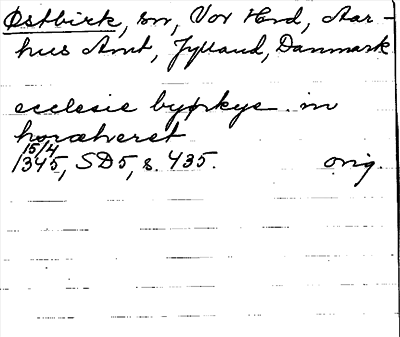 Østbirk, sn, Vor Hrd, Aar-
hus Amt, Jylland, Danmark
ecclesie byrkye in
horæhæret
15/4
1345, SD5, s. 435. orig.